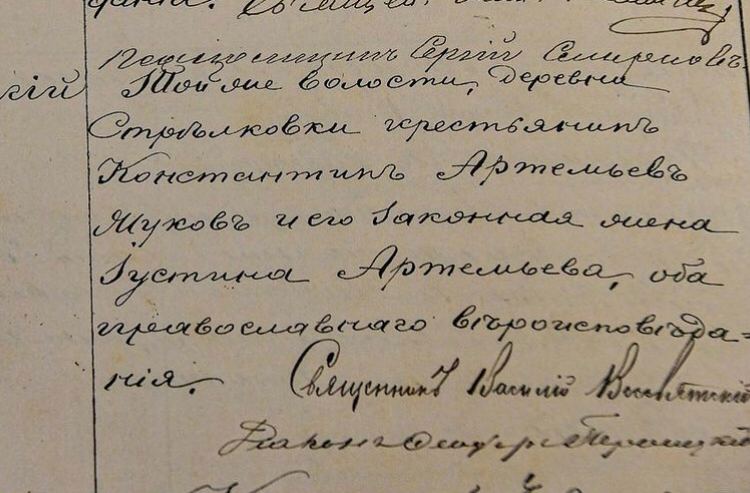 кій
Псаломщикъ Сергій Смирновъ
Той же волости, деревни
Стрѣлковки крестьянинъ
Константинъ Артемьевъ
Жуковъ и его законная жена
Іустина Артемьева, оба
православнаго вѣроисповѣда=
нія.
Священникъ Василій
Діаконъ